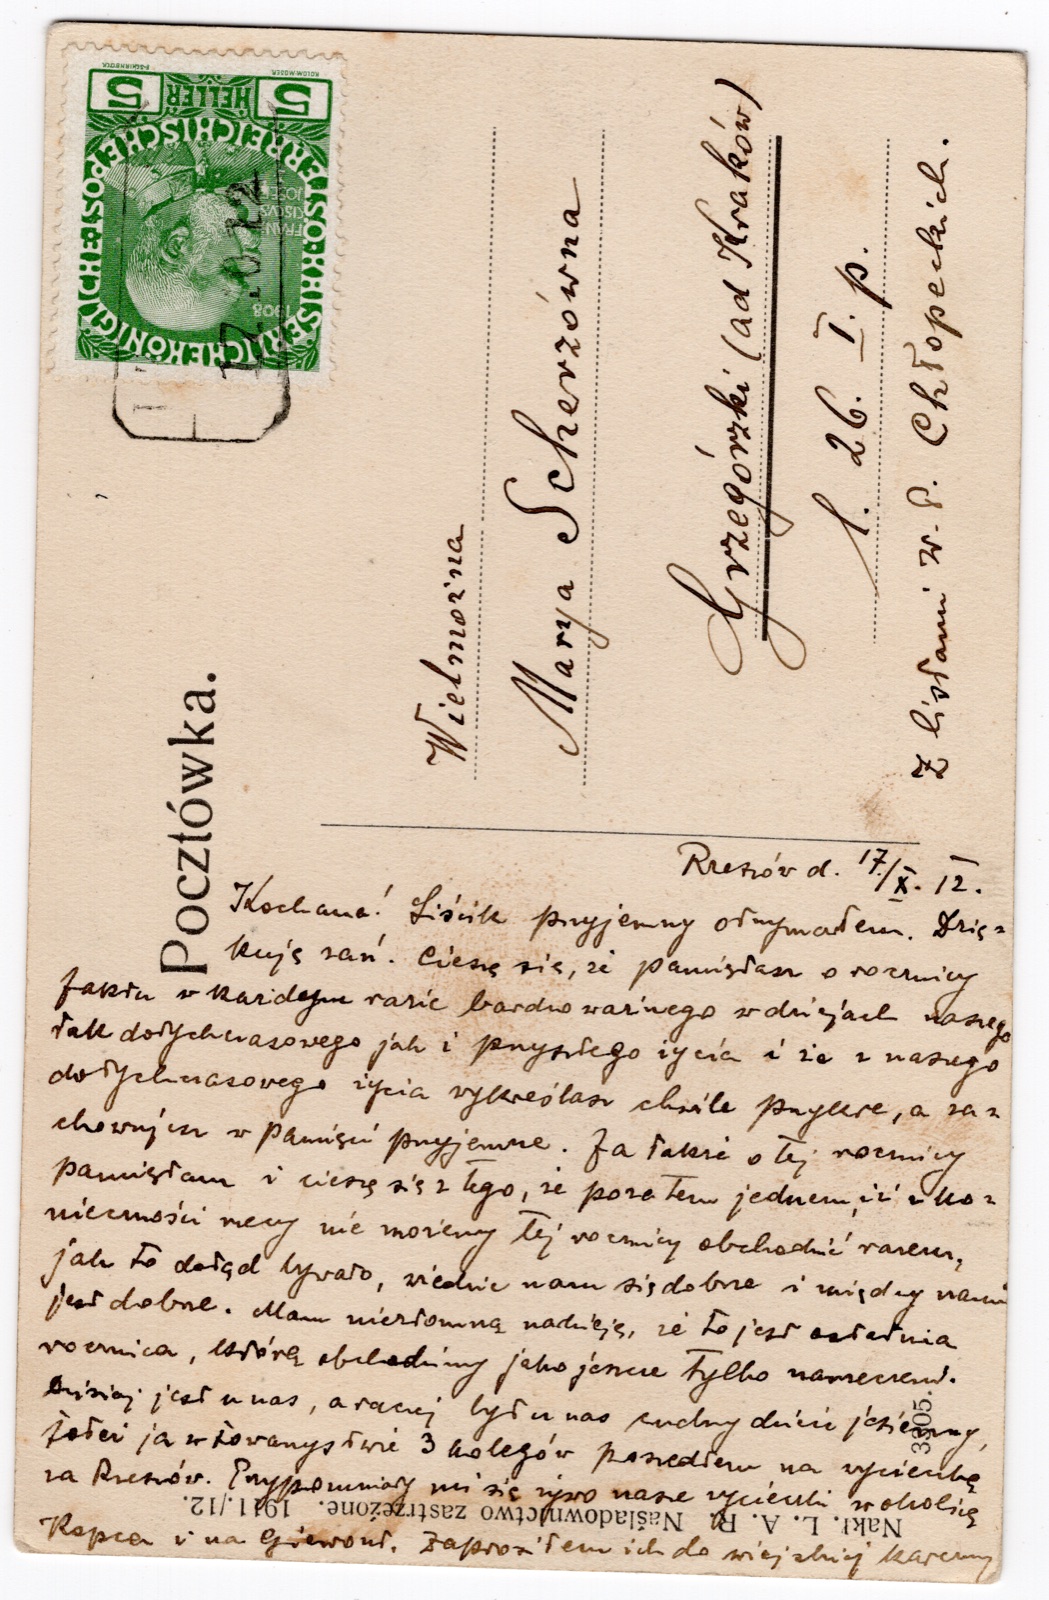 Pocztówka.
5 HELLER 5
KAISERLICHE KÖNIGLICHE ÖSTERREICHISCHE POST
FRANCISCVS JOSEPH I
1908
KOLOM. MOSER.
F. SCHIRNBÖCK
Wielmożna
Marya Scherzówna
Grzegórzki (ad Kraków)
l. 26. I. p.
Z listami w. P. Chłopeckich.
Rzeszów d. 17/X. 12.
Kochana! Liścik przyjemny otrzymałem. Dzię-
kuję zań. Cieszę się, że pamiętasz o rocznicy
faktu w każdym razie bardzo ważnego w dziejach naszego
tak dotychczasowego jak i przyszłego życia i że z naszego
dotychczasowego życia wykreślasz chwile przykre, a za-
chowujesz w pamięci przyjemne. Ja także o tej rocznicy
pamiętam i cieszę się z tego, że poza tem jednem, iż z ko-
nieczności rzeczy nie możemy tej rocznicy obchodzić razem,
jak to dotąd bywało, wiedzie nam się dobrze i między nami
jest dobrze. Mam niezłomną nadzieję, że to jest ostatnia
rocznica, którą obchodzimy jako jeszcze tylko narzeczeni.
Dzisiaj jest u nas, a raczej był u nas cudny dzień jesienny,
to też ja w towarzystwie 3 kolegów poszedłem na wycieczkę
za Rzeszów. Przypomniały mi się żywo nasze wycieczki w okolicę
Kopca i na Giewont. Zaprosiłem ich do wiejskiej karczmy
Nakł. L. A. R. Naśladownictwo zastrzeżone. 1911./12.